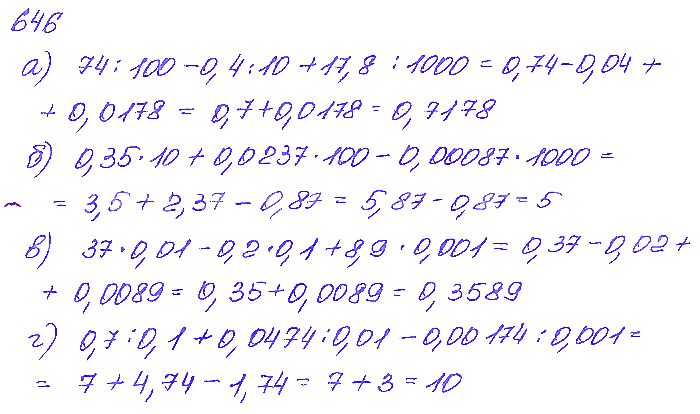 646
а) 74 : 100 - 0,4 : 10 + 17,8 : 1000 = 0,74 - 0,04 +
+ 0,0178 = 0,7 + 0,0178 = 0,7178
б) 0,35 · 10 + 0,0237 · 100 - 0,00087 · 1000 =
= 3,5 + 2,37 - 0,87 = 5,87 - 0,87 = 5
в) 37 · 0,01 - 0,2 · 0,1 + 8,9 · 0,001 = 0,37 - 0,02 +
+ 0,0089 = 0,35 + 0,0089 = 0,3589
г) 0,7 : 0,1 + 0,0474 : 0,01 - 0,00174 : 0,001 =
= 7 + 4,74 - 1,74 = 7 + 3 = 10